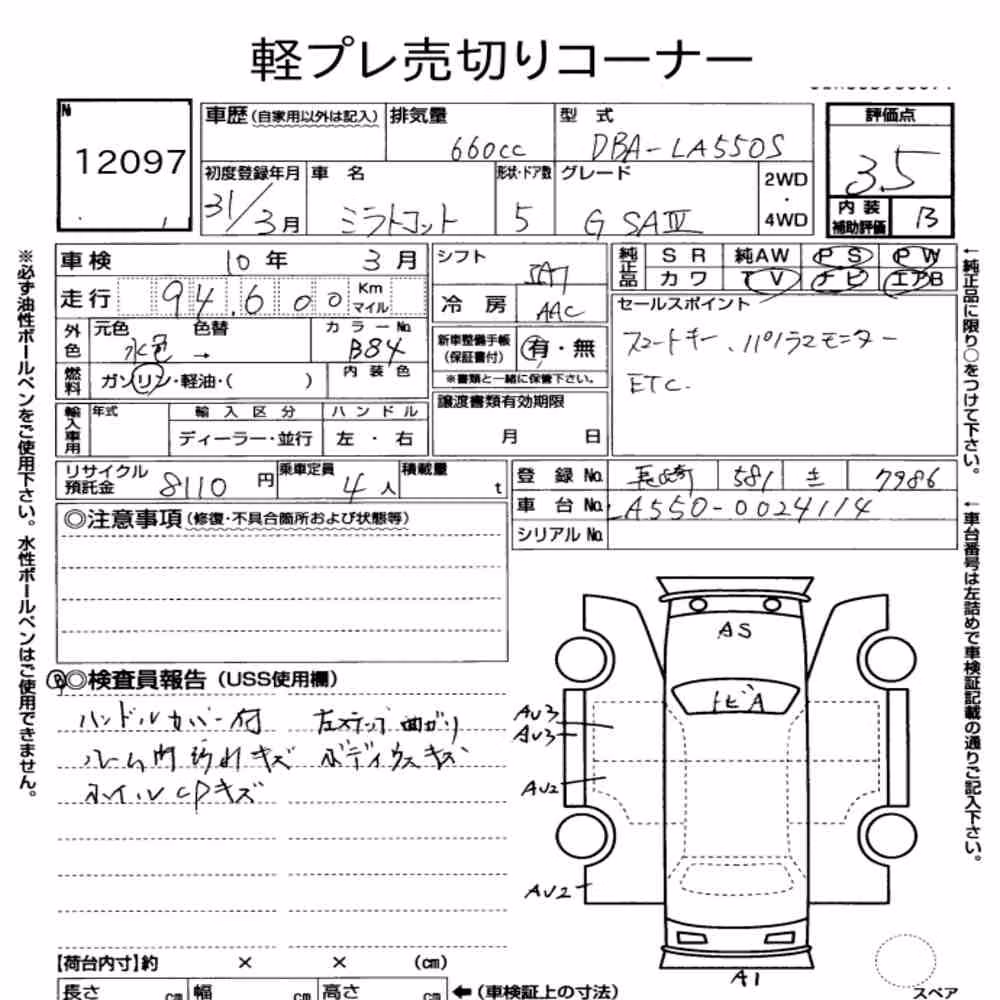 軽プレ売切りコーナー
№ 12097
車歴(自家用以外は記入) 排気量 660cc 型式 DBA-LA550S 評価点 3.5
初度登録年月 31/3月 車名 ミラトコット 形状・ドア数 5 グレード G SAⅢ 2WD・4WD 内装補助評価 B
車検 10年 3月 シフト IAT 純正品 SR 純AW PS PW
走行 94,600 Km マイル 冷房 AAC カワ TV ナビ エアB
外色 元色 水色 色替 → カラーNo. B84 新車整備手帳(保証書付) 有・無 セールスポイント
※書類と一緒に保管下さい。
スマートキー、パノラマモニター
ETC.
燃料 ガソリン・軽油・( ) 内装色
譲渡書類有効期限 月 日
輸入車用 年式 輸入区分 ハンドル
ディーラー・並行 左・右
リサイクル預託金 8110円 乗車定員 4人 積載量 t 登録No. 長崎 581 き 7986
車台No. LA550-0024114
シリアルNo.
◎注意事項(修復・不具合箇所および状態等)
B◎検査員報告(USS使用欄)
ハンドルカバー付 左ステップ曲がり
ルーム内汚れキズ ボディウスキズ
ホイルCPキズ
AS
トビA
AU3
AU3
AU2
AU2
A1
スペア
【荷台内寸】約 × × (cm)
長さ cm 幅 cm 高さ cm ←(車検証上の寸法)
※必ず油性ボールペンをご使用下さい。水性ボールペンはご使用できません。
←純正品に限り○をつけて下さい。
←車台番号は左詰めで車検証記載の通りご記入下さい。